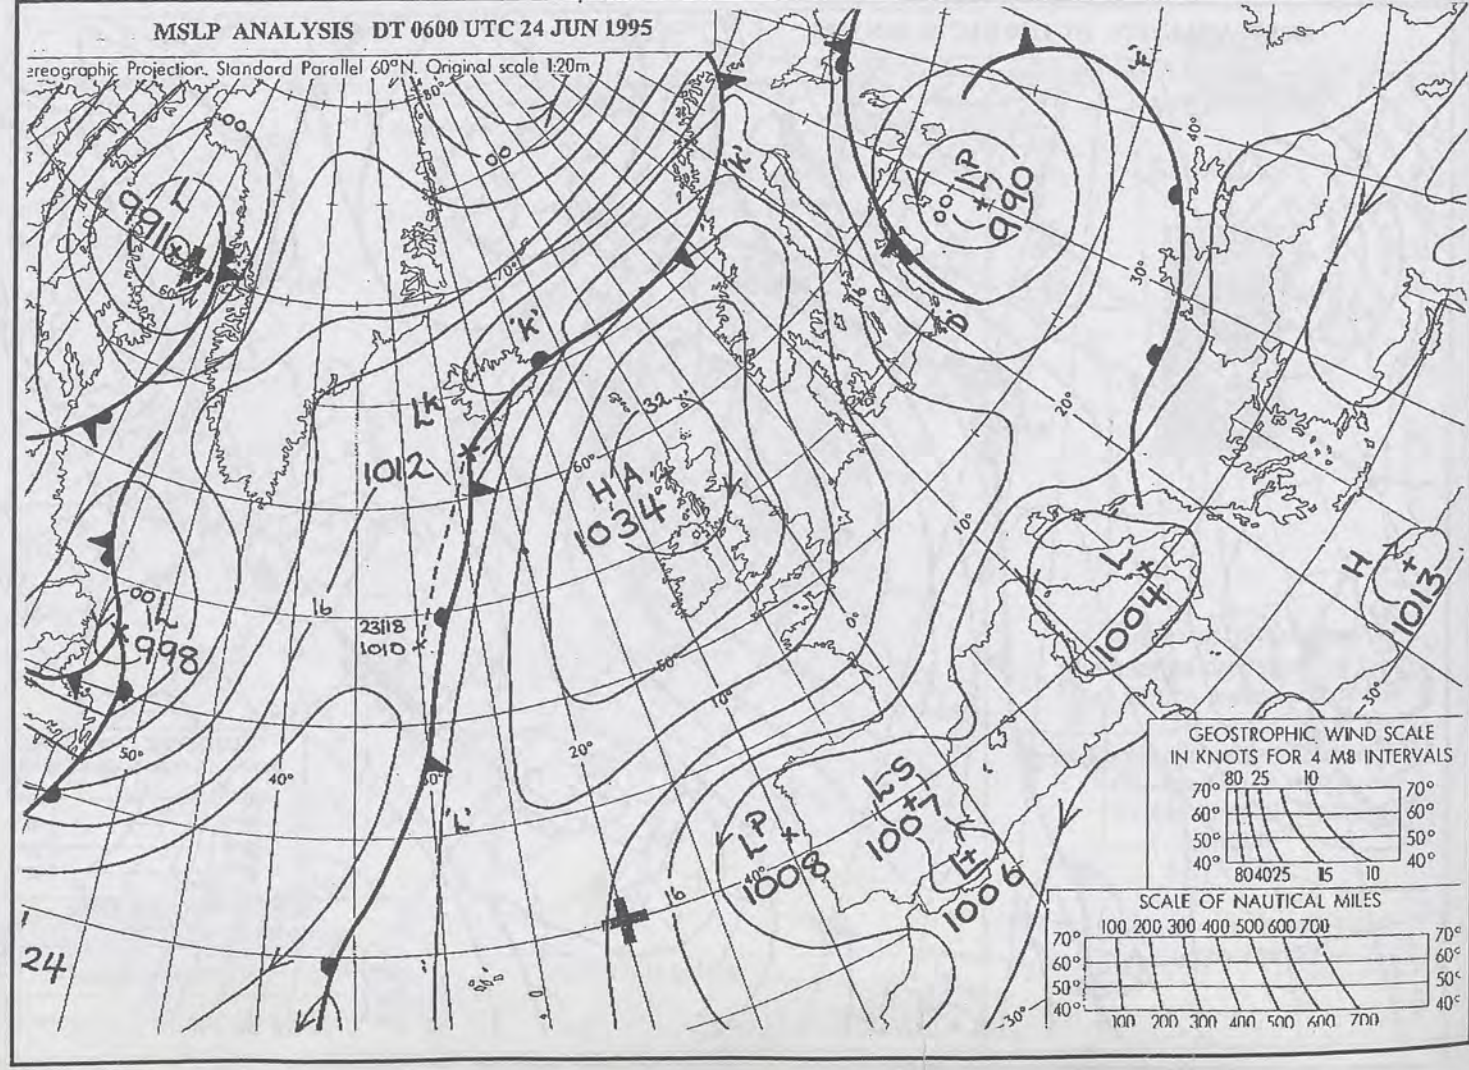 MSLP ANALYSIS DT 0600 UTC 24 JUN 1995
ereographic Projection. Standard Parallel 60°N. Original scale 1:20m
80°
00
00
'K'
40°
L
P
L
990
00
70°
30°
'K'
LK
D
32
20°
1012
60°
H A
1034
10°
L
1004
H
1013
16
23/18
1010
0°
00
L
998
50°
10°
30°
50°
40°
30°
20°
'L'
LS
1007
P
L
1008
40°
L
1006
16
24
30°
GEOSTROPHIC WIND SCALE
IN KNOTS FOR 4 MB INTERVALS
80 25 10
70° 70°
60° 60°
50° 50°
40° 40°
80 40 25 15 10
SCALE OF NAUTICAL MILES
100 200 300 400 500 600 700
70° 70°
60° 60°
50° 50°
40° 40°
100 200 300 400 500 600 700